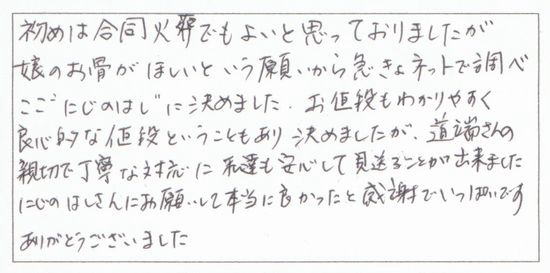 初めは合同火葬でもよいと思っておりましたが
娘のお骨がほしいという願いから急きょネットで調べ
ここ"にじのはし"に決めました。お値段もわかりやすく
良心的な値段ということもあり決めましたが、道端さんの
親切で丁寧な対応に私達も安心して見送ることが出来ました
にじのはしさんにお願いして本当に良かったと感謝でいっぱいです
ありがとうございました